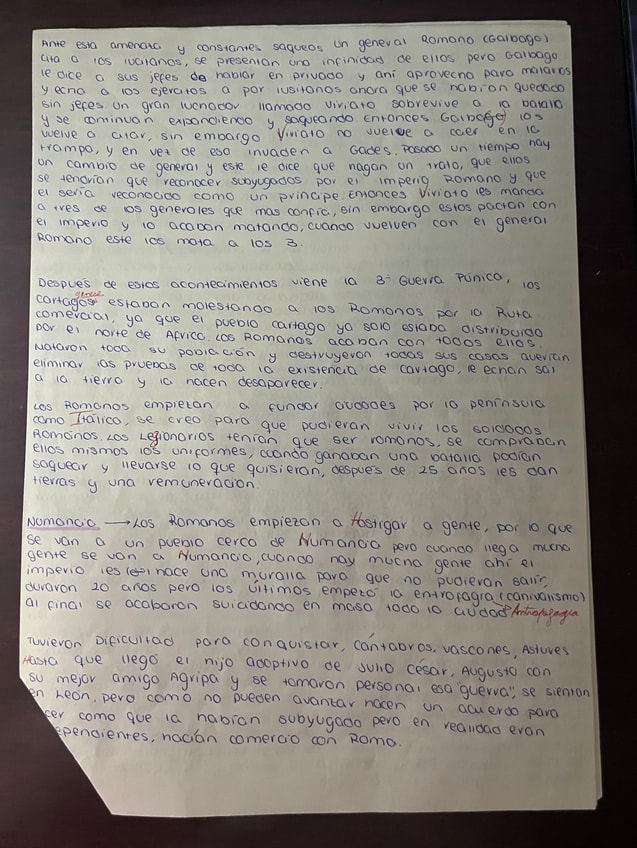 Ante esta amenaza y constantes saqueos un general Romano (Galbago)
cita a los lusitanos, se presentan una infinidad de ellos pero Galbago
le dice a sus jefes de hablar en privado y ahí aprovecho para matarlos
y echo a los ejercitos a por lusitanos ahora que se habían quedado
sin jefes un gran luchador llamado Viriato sobrevive a la batalla
y se continuan expandiendo y saqueando. Entonces Galbago los
vuelve a citar, sin embargo Viriato no vuelve a caer en la
trampa, y en vez de eso invaden a Gades. Pasado un tiempo hay
un cambio de general y este le dice que hagan un trato, que ellos
se tendrían que reconocer subyugados por el imperio Romano y que
el sería reconocido como un principe. Entonces Viriato les manda
a tres de los generales que mas confía, sin embargo estos pactan con
el imperio y lo acaban matando, cuando vuelven con el general
Romano este los mata a los 3.
Después de estos acontecimientos viene la 3ª Guerra Púnica, los
cartagos ginese estaban molestando a los Romanos por la Ruta
comercial, ya que el pueblo cartago ya solo estaba distribuido
por el norte de Africa. Los Romanos acaban con todos ellos.
Mataron toda su población y destruyeron todas sus casas querían
eliminar las pruebas de toda la existencia de cartago, le echan sal
a la tierra y la hacen desaparecer.
Los Romanos empiezan a fundar ciudades por la península
como Itálica, se creo para que pudieran vivir los soldados
Romanos. Los Legionarios tenían que ser romanos, se compraban
ellos mismos los uniformes, cuando ganaban una batalla podían
saquear y llevarse lo que quisieran, después de 25 años les dan
tierras y una remuneración.
Numancia → Los Romanos empiezan a Hostigar a gente, por lo que
se van a un pueblo cerca de Numancia pero cuando llega mucha
gente se van a Numancia, cuando hay mucha gente ahí el
imperio les hace una muralla para que no pudieran salir,
duraron 20 años pero los últimos empezó la entrofagia (canivalismo)
Al final se acabaron suicidando en masa todo la ciudad Antropofagia
Tuvieron Dificultad para conquistar, Cántabros, vascones, Astures
Hasta que llegó el hijo adoptivo de Julio César, Augusto con
su mejor amigo Agripa y se tomaron personal esa "guerra", se sientan
en León, pero como no pueden avanzar hacen un acuerdo para
cer como que la habían subyugado pero en realidad eran
ependientes, hacían comercio con Roma.